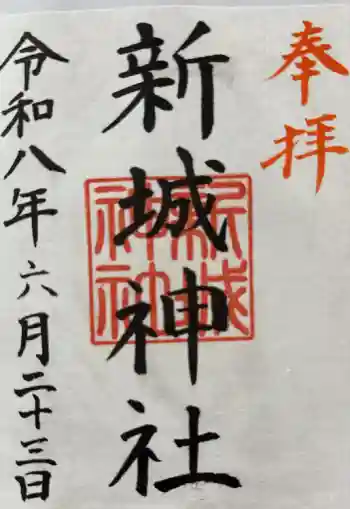 奉拝
新城神社
新城
神社
令和八年六月二十三日